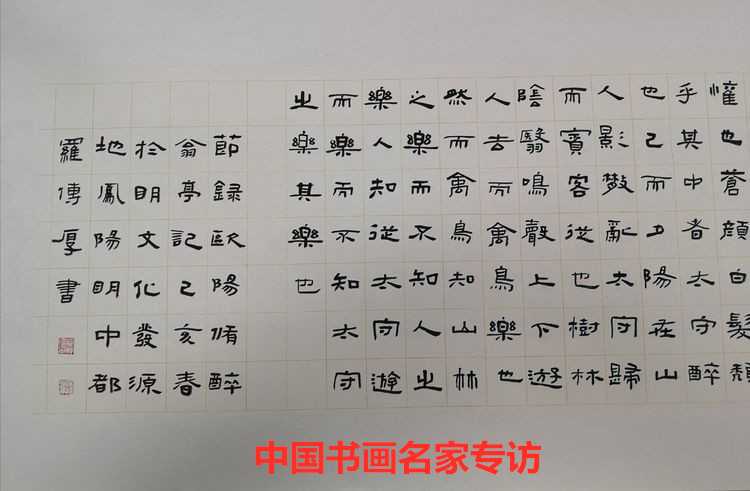 懽也蒼顔白髮頹
乎其中者太守醉
也已而夕陽在山
人影散亂太守歸
而賓客從也樹林
陰翳鳴聲上下遊
人去而禽鳥樂也
然而禽鳥知山林
之樂而不知人之
樂人知從太守遊
而樂而不知太守
之樂其樂也
節録歐陽脩醉
翁亭記己亥春
於明文化發源
地鳳陽明中都
羅傳厚書
中国书画名家专访